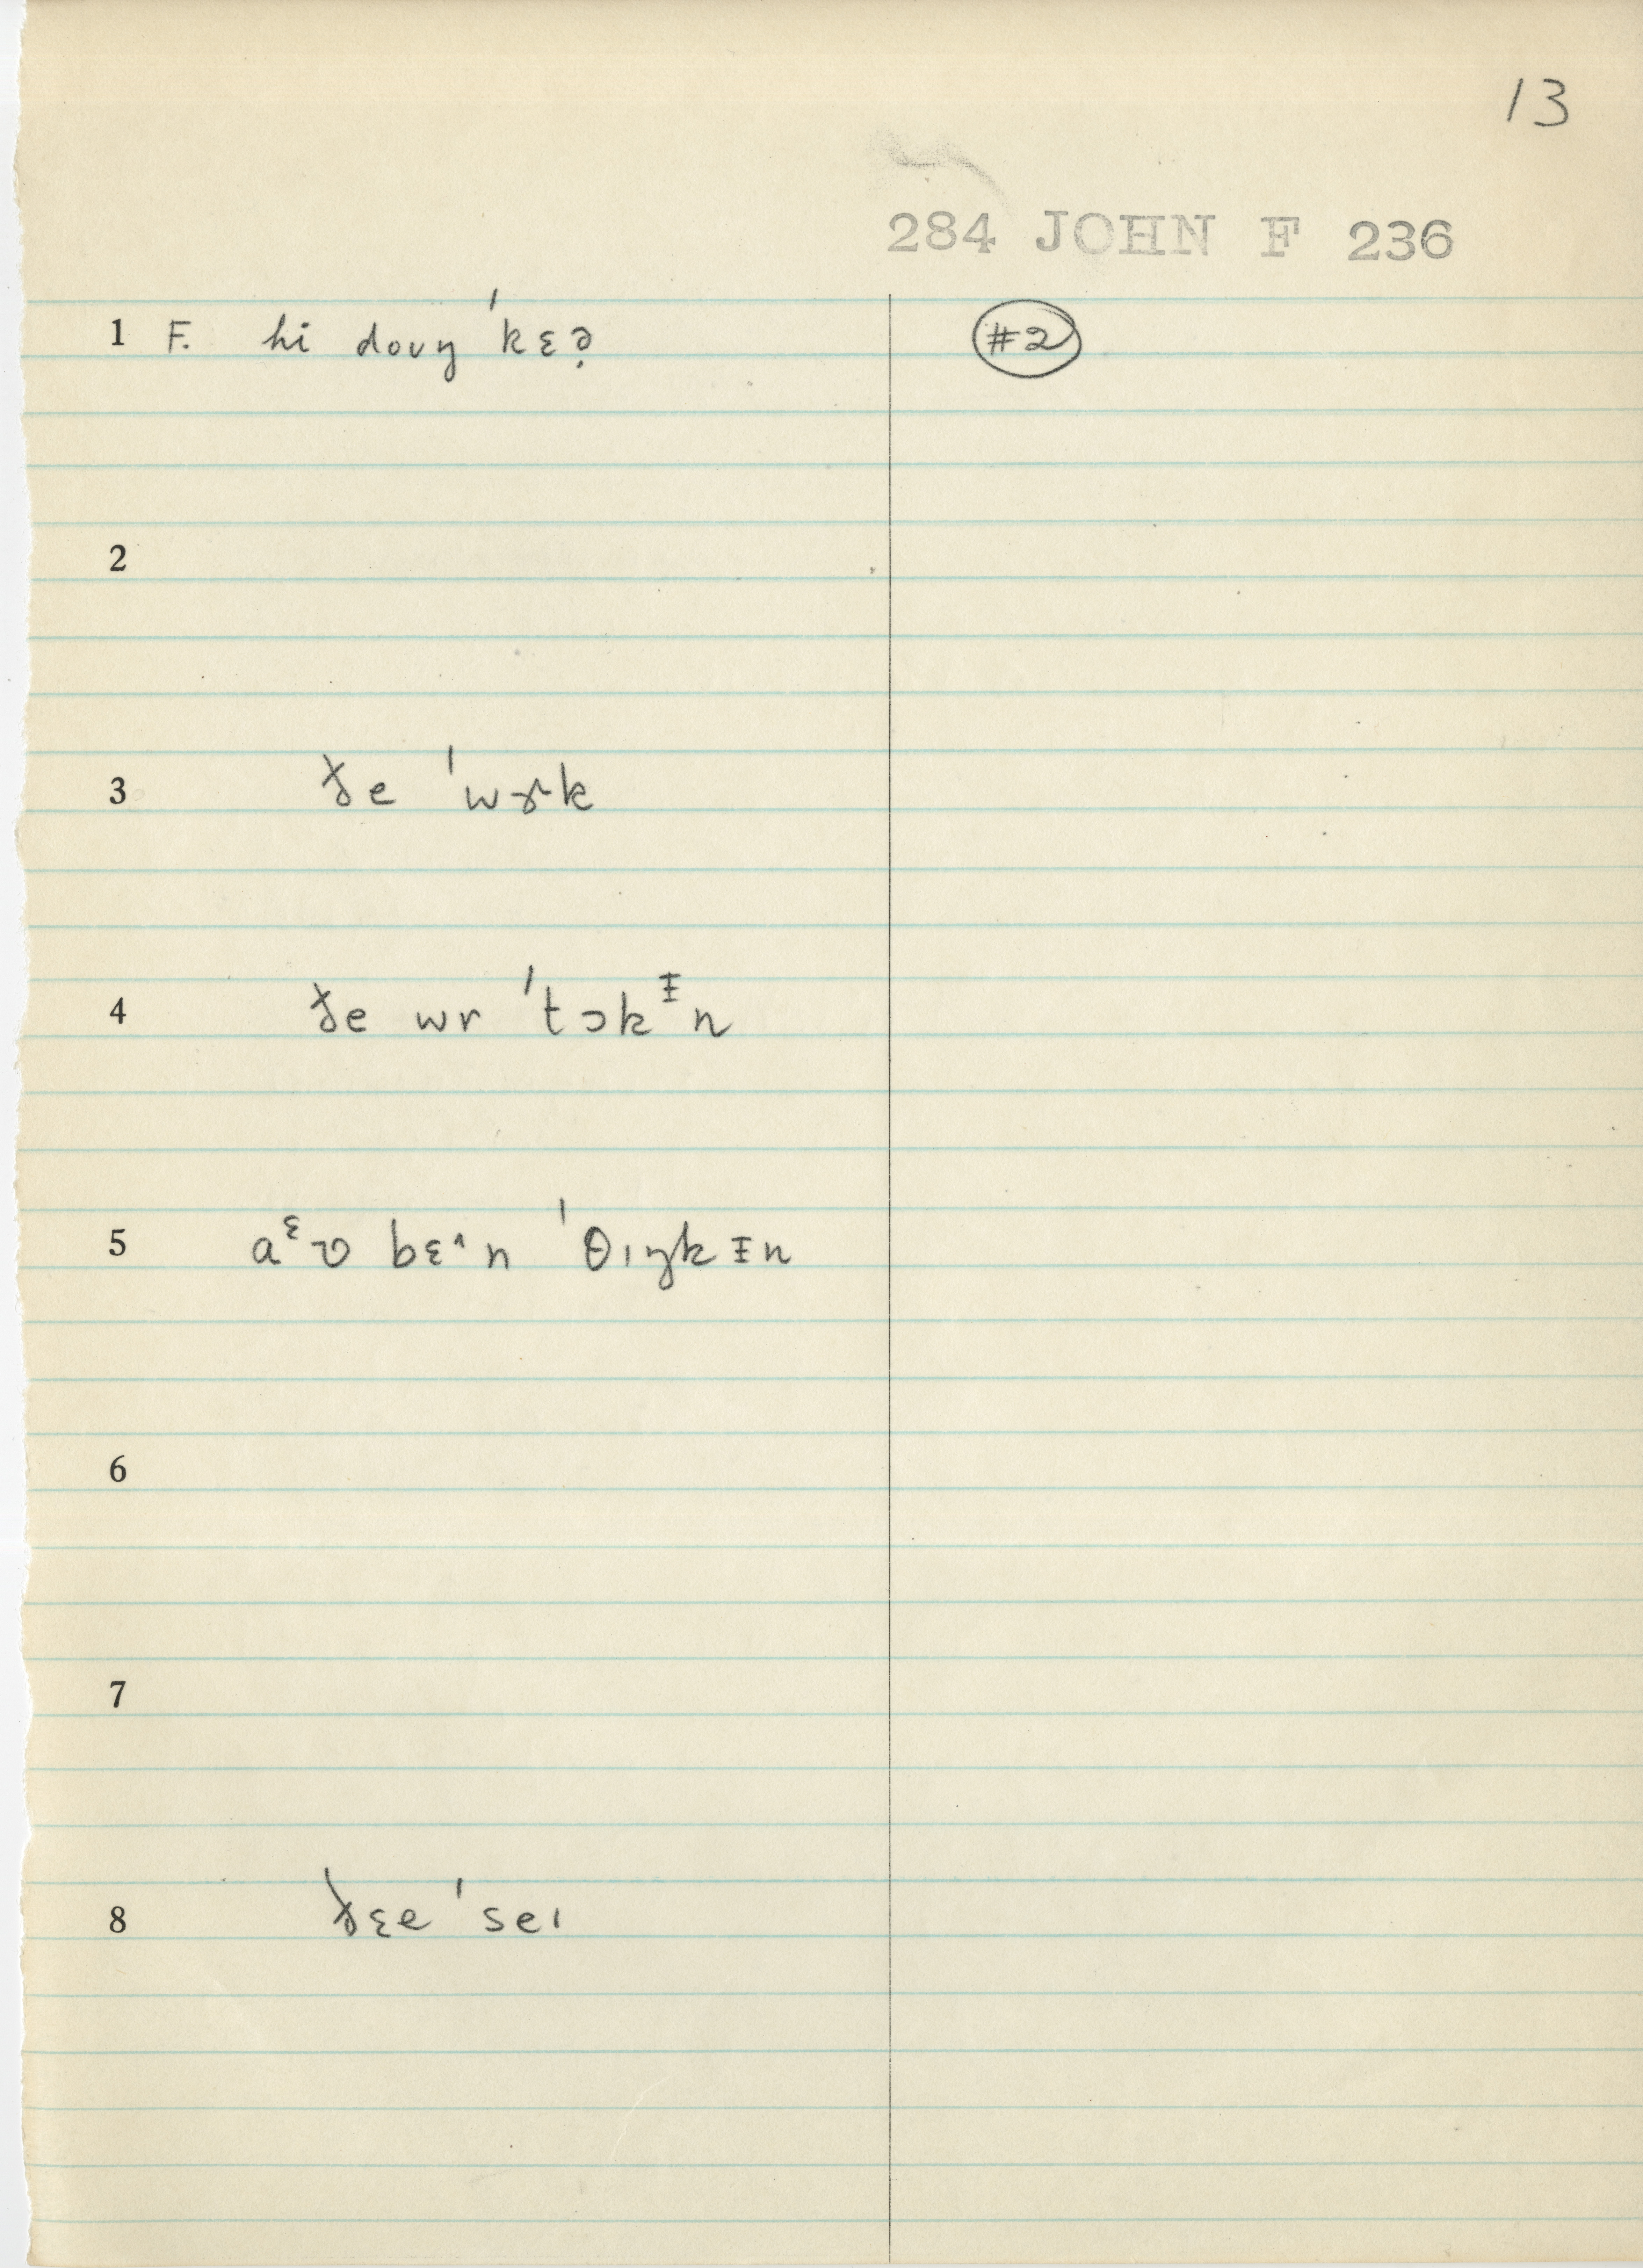 13
284 JOHN F 236
1 F. hi doʊŋ ˈkɛə̣ #2
2
3 ðe ˈwɝk
4 ðe wr ˈtɔkᵻn
5 aᵋʋ bɛ˄n ˈθɪŋkᵻn
6
7
8 ðɛe ˈseɪ